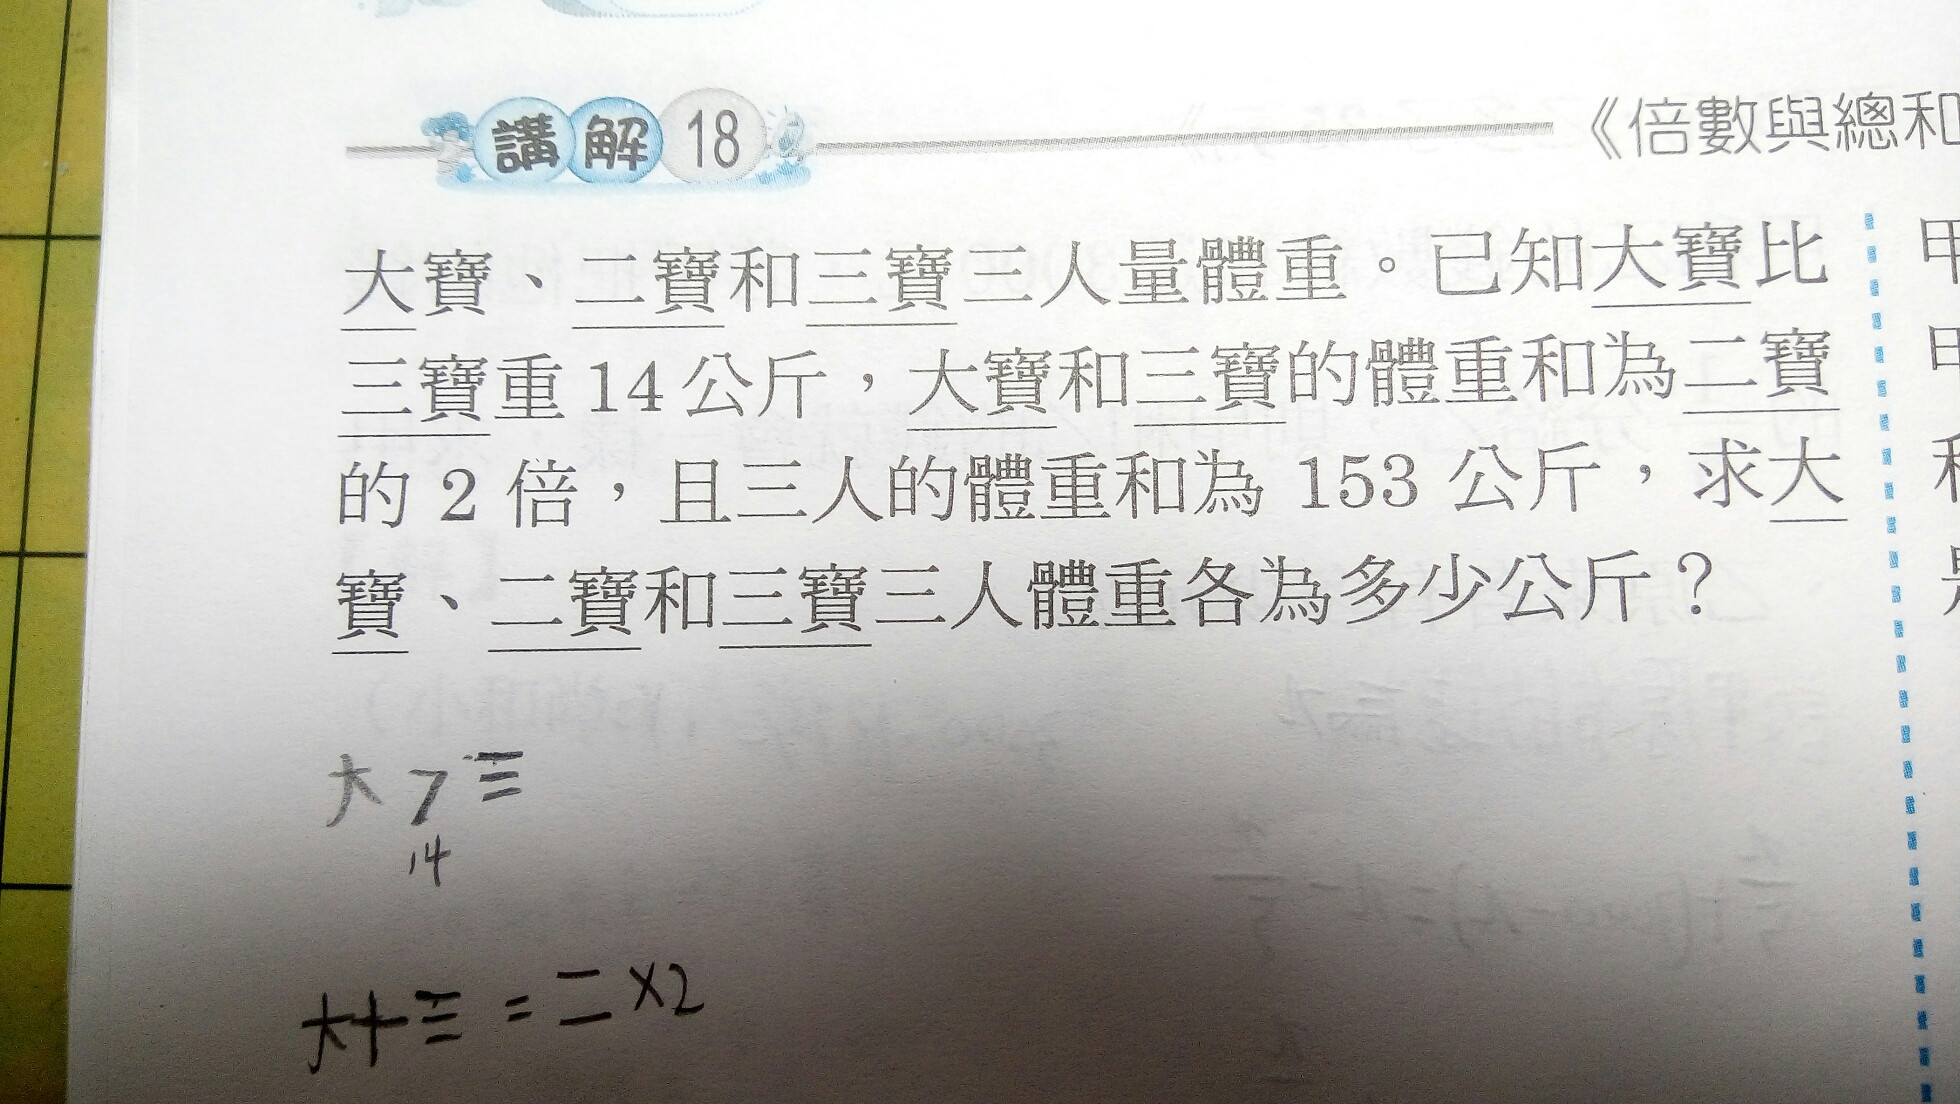 講解18
《倍數與總和
大寶、二寶和三寶三人量體重。已知大寶比
三寶重14公斤,大寶和三寶的體重和為二寶
的2倍,且三人的體重和為153公斤,求大
寶、二寶和三寶三人體重各為多少公斤?
大>三
14
大+三=二×2
甲